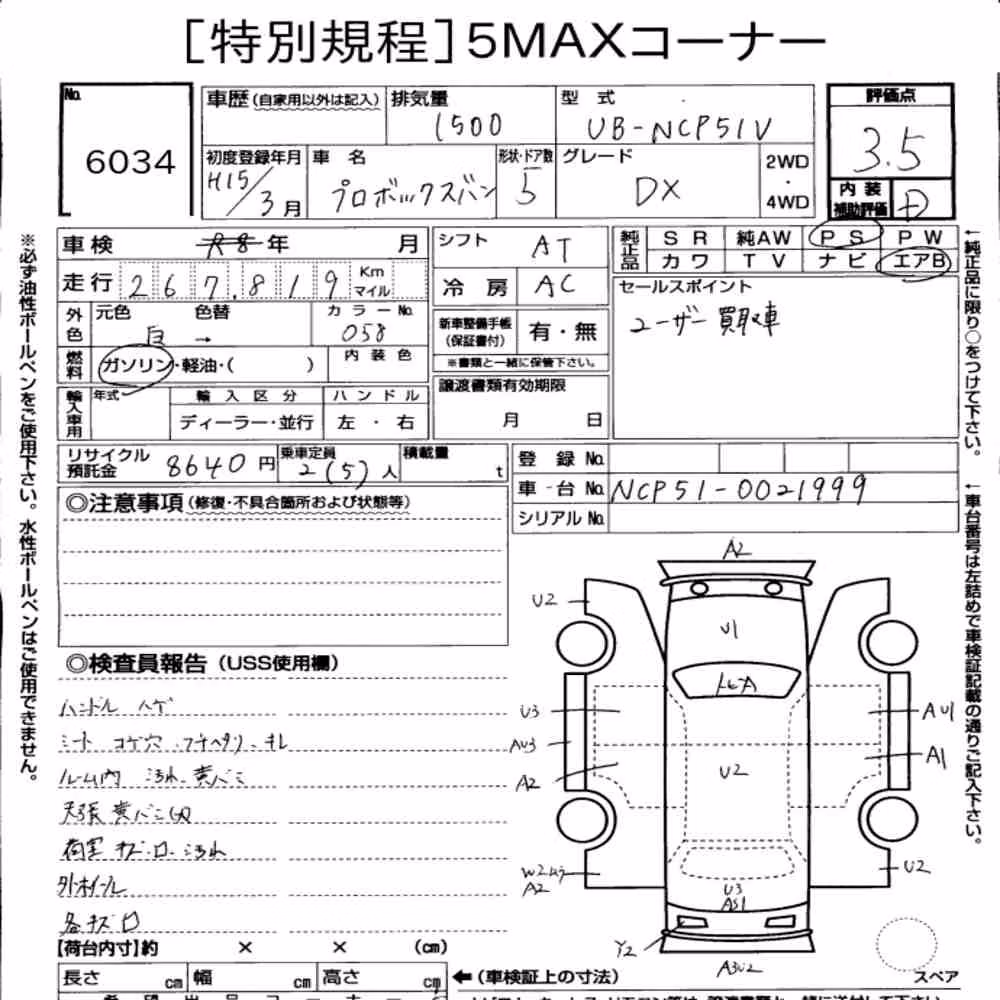 [特別規程]5MAXコーナー
No. 6034
車歴(自家用以外は記入) 排気量 1500 型式 UB-NCP51V
評価点 3.5
初度登録年月 H15/3月 車名 プロボックスバン 形状・ドア数 5 グレード DX 2WD・4WD
内装補助評価 D
※必ず油性ボールペンをご使用下さい。水性ボールペンはご使用できません。
車検 年 月
走行 267,819 Km マイル
外色 元色 白 色替 → カラーNo. 058
燃料 ガソリン・軽油・( ) 内装色
輸入車用 年式 輸入区分 ハンドル
ディーラー・並行 左・右
シフト AT
冷房 AC
新車整備手帳(保証書付) 有・無
※書類と一緒に保管下さい。
譲渡書類有効期限
月 日
純正品 SR 純AW PS PW
カワ TV ナビ エアB
セールスポイント
ユーザー買取車
←純正品に限り○をつけて下さい。
リサイクル預託金 8640円 乗車定員 2(5)人 積載量 t
登録No.
車台No. NCP51-0021999
シリアルNo.
←車台番号は左詰めで車検証記載の通りご記入下さい。
◎注意事項(修復・不具合箇所および状態等)
◎検査員報告(USS使用欄)
ハンドル ハゲ
シート コゲ穴・フチヘタリ・キレ
ルーム内 汚れ・黄バミ
天張 黄バミ
荷室 キズ・ロ・汚れ
外ホイール
各キズ ロ
A2
U2
U1
U3
AU3
A2
AU1
A1
U2
W2ムラ
A2
U3
AS1
U2
Y2
A3U2
スペア
【荷台内寸】約 × × (cm)
長さ cm 幅 cm 高さ cm
←(車検証上の寸法)